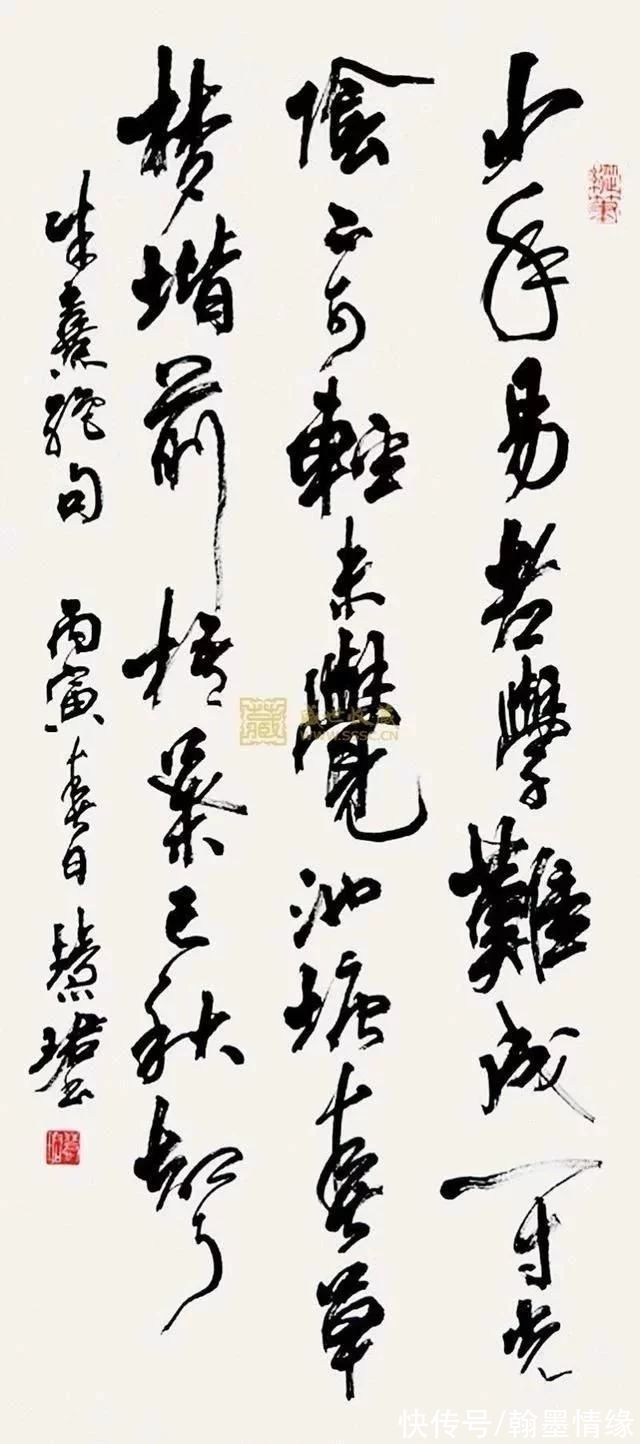 少年易老學難成一寸光
陰不可輕未覺池塘春草
梦堦前梧葉已秋聲
朱熹絕句 丙寅春日 慧珺
藏
WWW.SSSC.CN
快传号/翰墨情缘